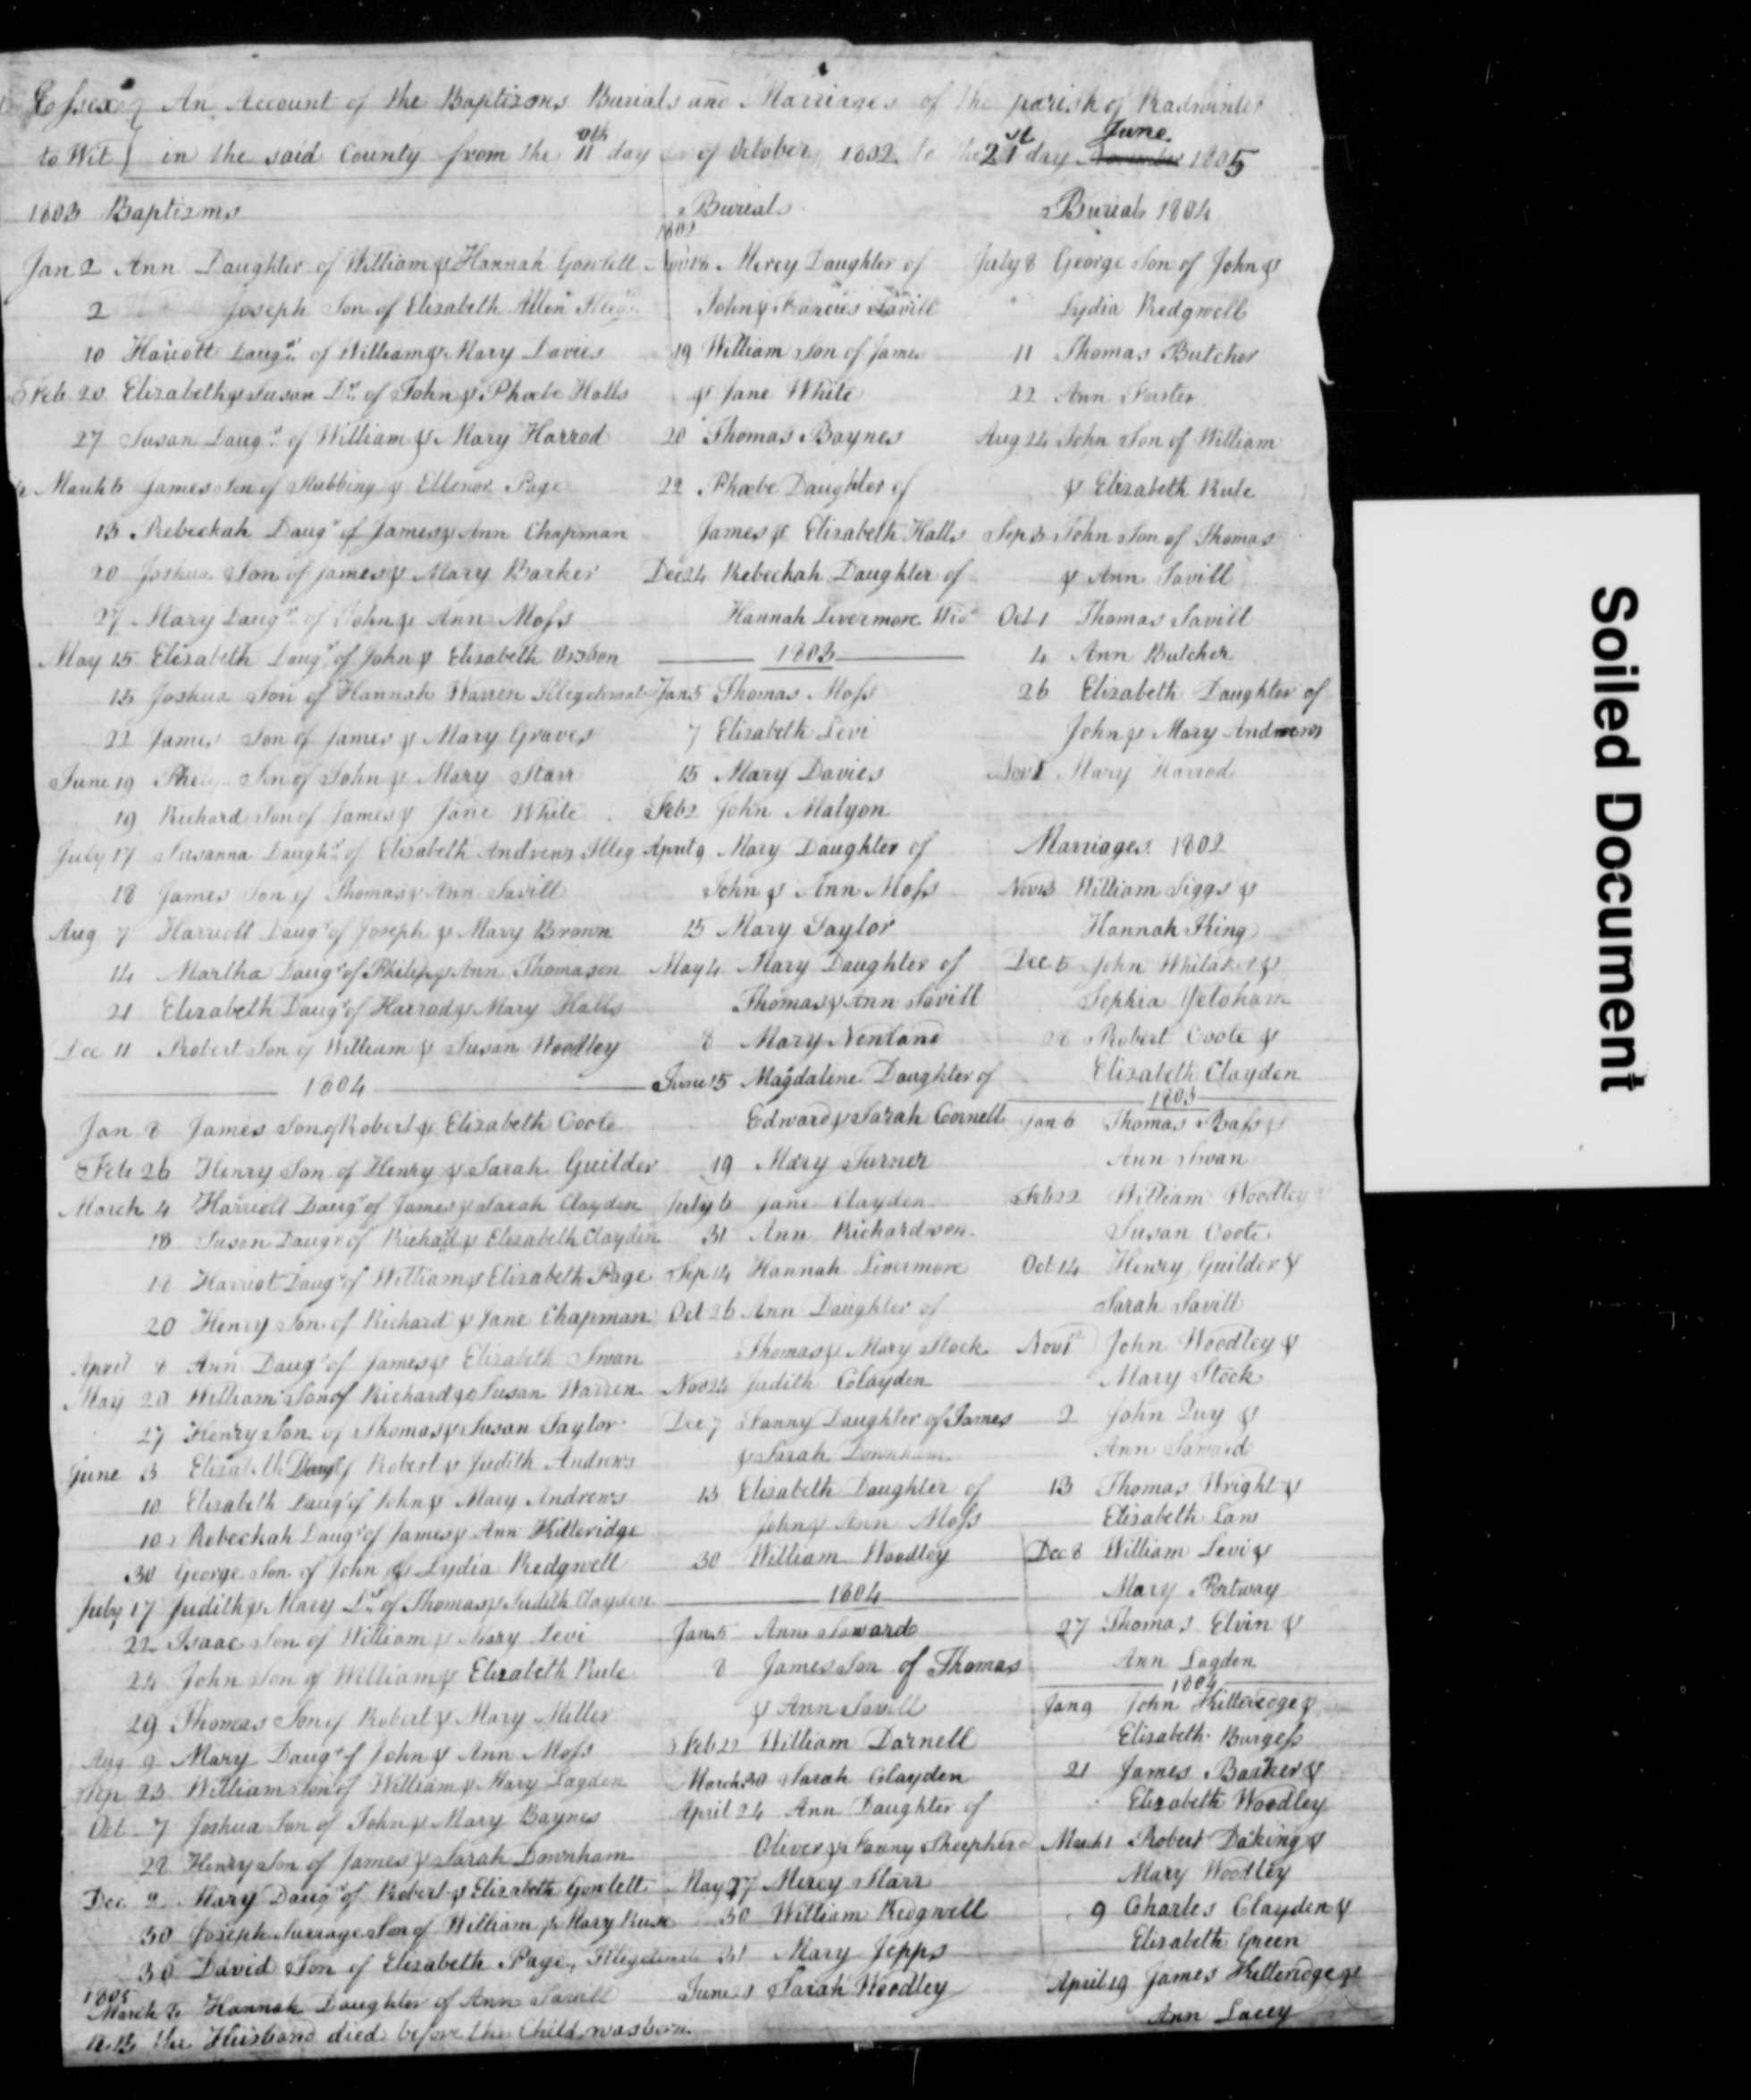 Essex } An Account of the Baptisms Burials and Marriages of the parish of Radwinter
to Wit } in the said County from the 11th day of October 1802 to the 21st day June 1805
1803 Baptisms
Jan 2 Ann Daughter of William & Hannah Gowlett
2 Joseph Son of Elizabeth Allen Illeg
10 Hariott Daugr of William & Mary Davies
Feb 20 Elizabeth & Susan Dr of John & Phoebe Halls
27 Susan Daugr of William & Mary Harrod
March 6 James Son of Stubbing & Ellenor Page
13 Rebeckah Daugr of James & Ann Chapman
20 Joshua Son of James & Mary Barker
27 Mary Daugr of John & Ann Moss
May 15 Elizabeth Daugr of John & Elizabeth
15 Joshua Son of Hannah Warren Illegetimate
22 James Son of James & Mary Graves
June 19 Son of John & Mary Starr
19 Richard Son of James & Jane White
July 17 Susanna Daughr of Elizabeth Andrews Illeg
18 James Son of Thomas & Ann Savill
Aug 7 Harriott Daugr of Joseph & Mary Brown
14 Martha Daugr of Philip & Ann Thomason
21 Elizabeth Daugr of Harrod & Mary Halls
Dec 11 Robert Son of William & Susan Woodley
1804
Jan 8 James Son of Robert & Elizabeth Coote
Feb 26 Henry Son of Henry & Sarah Guilder
March 4 Harriott Daugr of James & Sarah Clayden
18 Susan Daugr of Richard & Elizabeth Clayden
18 Harriot Daugr of William & Elizabeth Page
20 Henry Son of Richard & Jane Chapman
April 8 Ann Daugr of James & Elizabeth Swan
May 20 William Son of Richard & Susan Warren
27 Henry Son of Thomas & Susan Taylor
June 3 Elizabeth Daugr of Robert & Judith Andrews
10 Elizabeth Daugr of John & Mary Andrews
10 Rebeckah Daugr of James & Ann Kitteridge
30 George Son of John & Lydia Redgwell
July 17 Judith & Mary Dr of Thomas & Judith Clayden
22 Isaac Son of William & Mary Levi
24 John Son of William & Elizabeth Rule
29 Thomas Son of Robert & Mary Miller
Aug 9 Mary Daugr of John & Ann Moss
Sep 23 William Son of William & Mary Lagden
Oct 7 Joshua Son of John & Mary Baynes
28 Henry Son of James & Sarah Downham
Dec 9 Mary Daugr of Robert & Elizabeth Gowlett
30 Joseph Surrage Son of William & Mary Ruse
30 David Son of Elizabeth Page, Illegetimate
1805
March Hannah Daughter of Ann Savill
N.B the Husband died before the Child was born
Burials
1802
Novr Mercy Daughter of
John & Savill
19 William Son of James
& Jane White
20 Thomas Baynes
22 Phoebe Daughter of
James & Elizabeth Halls
Dec 24 Rebeckah Daughter of
Hannah Livermore Wid
1803
Jan 5 Thomas Moss
7 Elizabeth Levi
15 Mary Davies
Feb 2 John Malyon
April 9 Mary Daughter of
John & Ann Moss
15 Mary Taylor
May 4 Mary Daughter of
Thomas & Ann Savill
8 Mary Newland
June 15 Magdalene Daughter of
Edward & Sarah Cornell
19 Mary Turner
July 6 Jane Clayden
31 Ann Richardson
Sep 14 Hannah Livermore
Oct 26 Ann Daughter of
Thomas & Mary Stock
Nov 24 Judith Clayden
Dec 7 Fanny Daughter of James
& Sarah Downham
13 Elizabeth Daughter of
John & Ann Moss
30 William Woodley
1804
Jan 5 Ann Saward
8 James Son of Thomas
& Ann Savill
Feb 22 William Darnell
March 30 Sarah Clayden
April 24 Ann Daughter of
Oliver & Fanny Sheepherd
May 27 Mercy Starr
30 William Redgwell
31 Mary Jepps
June 1 Sarah Woodley
Burials 1804
July 8 George Son of John &
Lydia Redgwell
11 Thomas Butcher
22 Ann Foster
Aug 24 John Son of William
& Elizabeth Rule
Sep 3 John Son of Thomas
& Ann Savill
Oct 1 Thomas Savill
4 Ann Butcher
26 Elizabeth Daughter of
John & Mary Andrews
Nov 1 Mary Harrod
Marriages 1802
Nov 3 William Siggs &
Hannah King
Dec 5 John Whitaker &
Sophia Yeldham
28 Robert Coote &
Elizabeth Clayden
1803
Jan 6 Thomas Bass &
Ann Swan
Feb 22 William Woodley
Susan Coote
Oct 14 Henry Guilder &
Sarah Savill
Nov 1 John Woodley &
Mary Stock
2 John Quy &
Ann Saward
13 Thomas Wright &
Elizabeth Law
Dec 8 William Levi &
Mary Portway
27 Thomas Elvin &
Ann Lagden
1804
Jan 9 John Kitteredge &
Elizabeth Burgess
21 James Barker &
Elizabeth Woodley
March 1 Robert Daking &
Mary Woodley
9 Charles Clayden &
Elizabeth Green
April 19 James Kitteridge &
Ann Lacey
Soiled Document